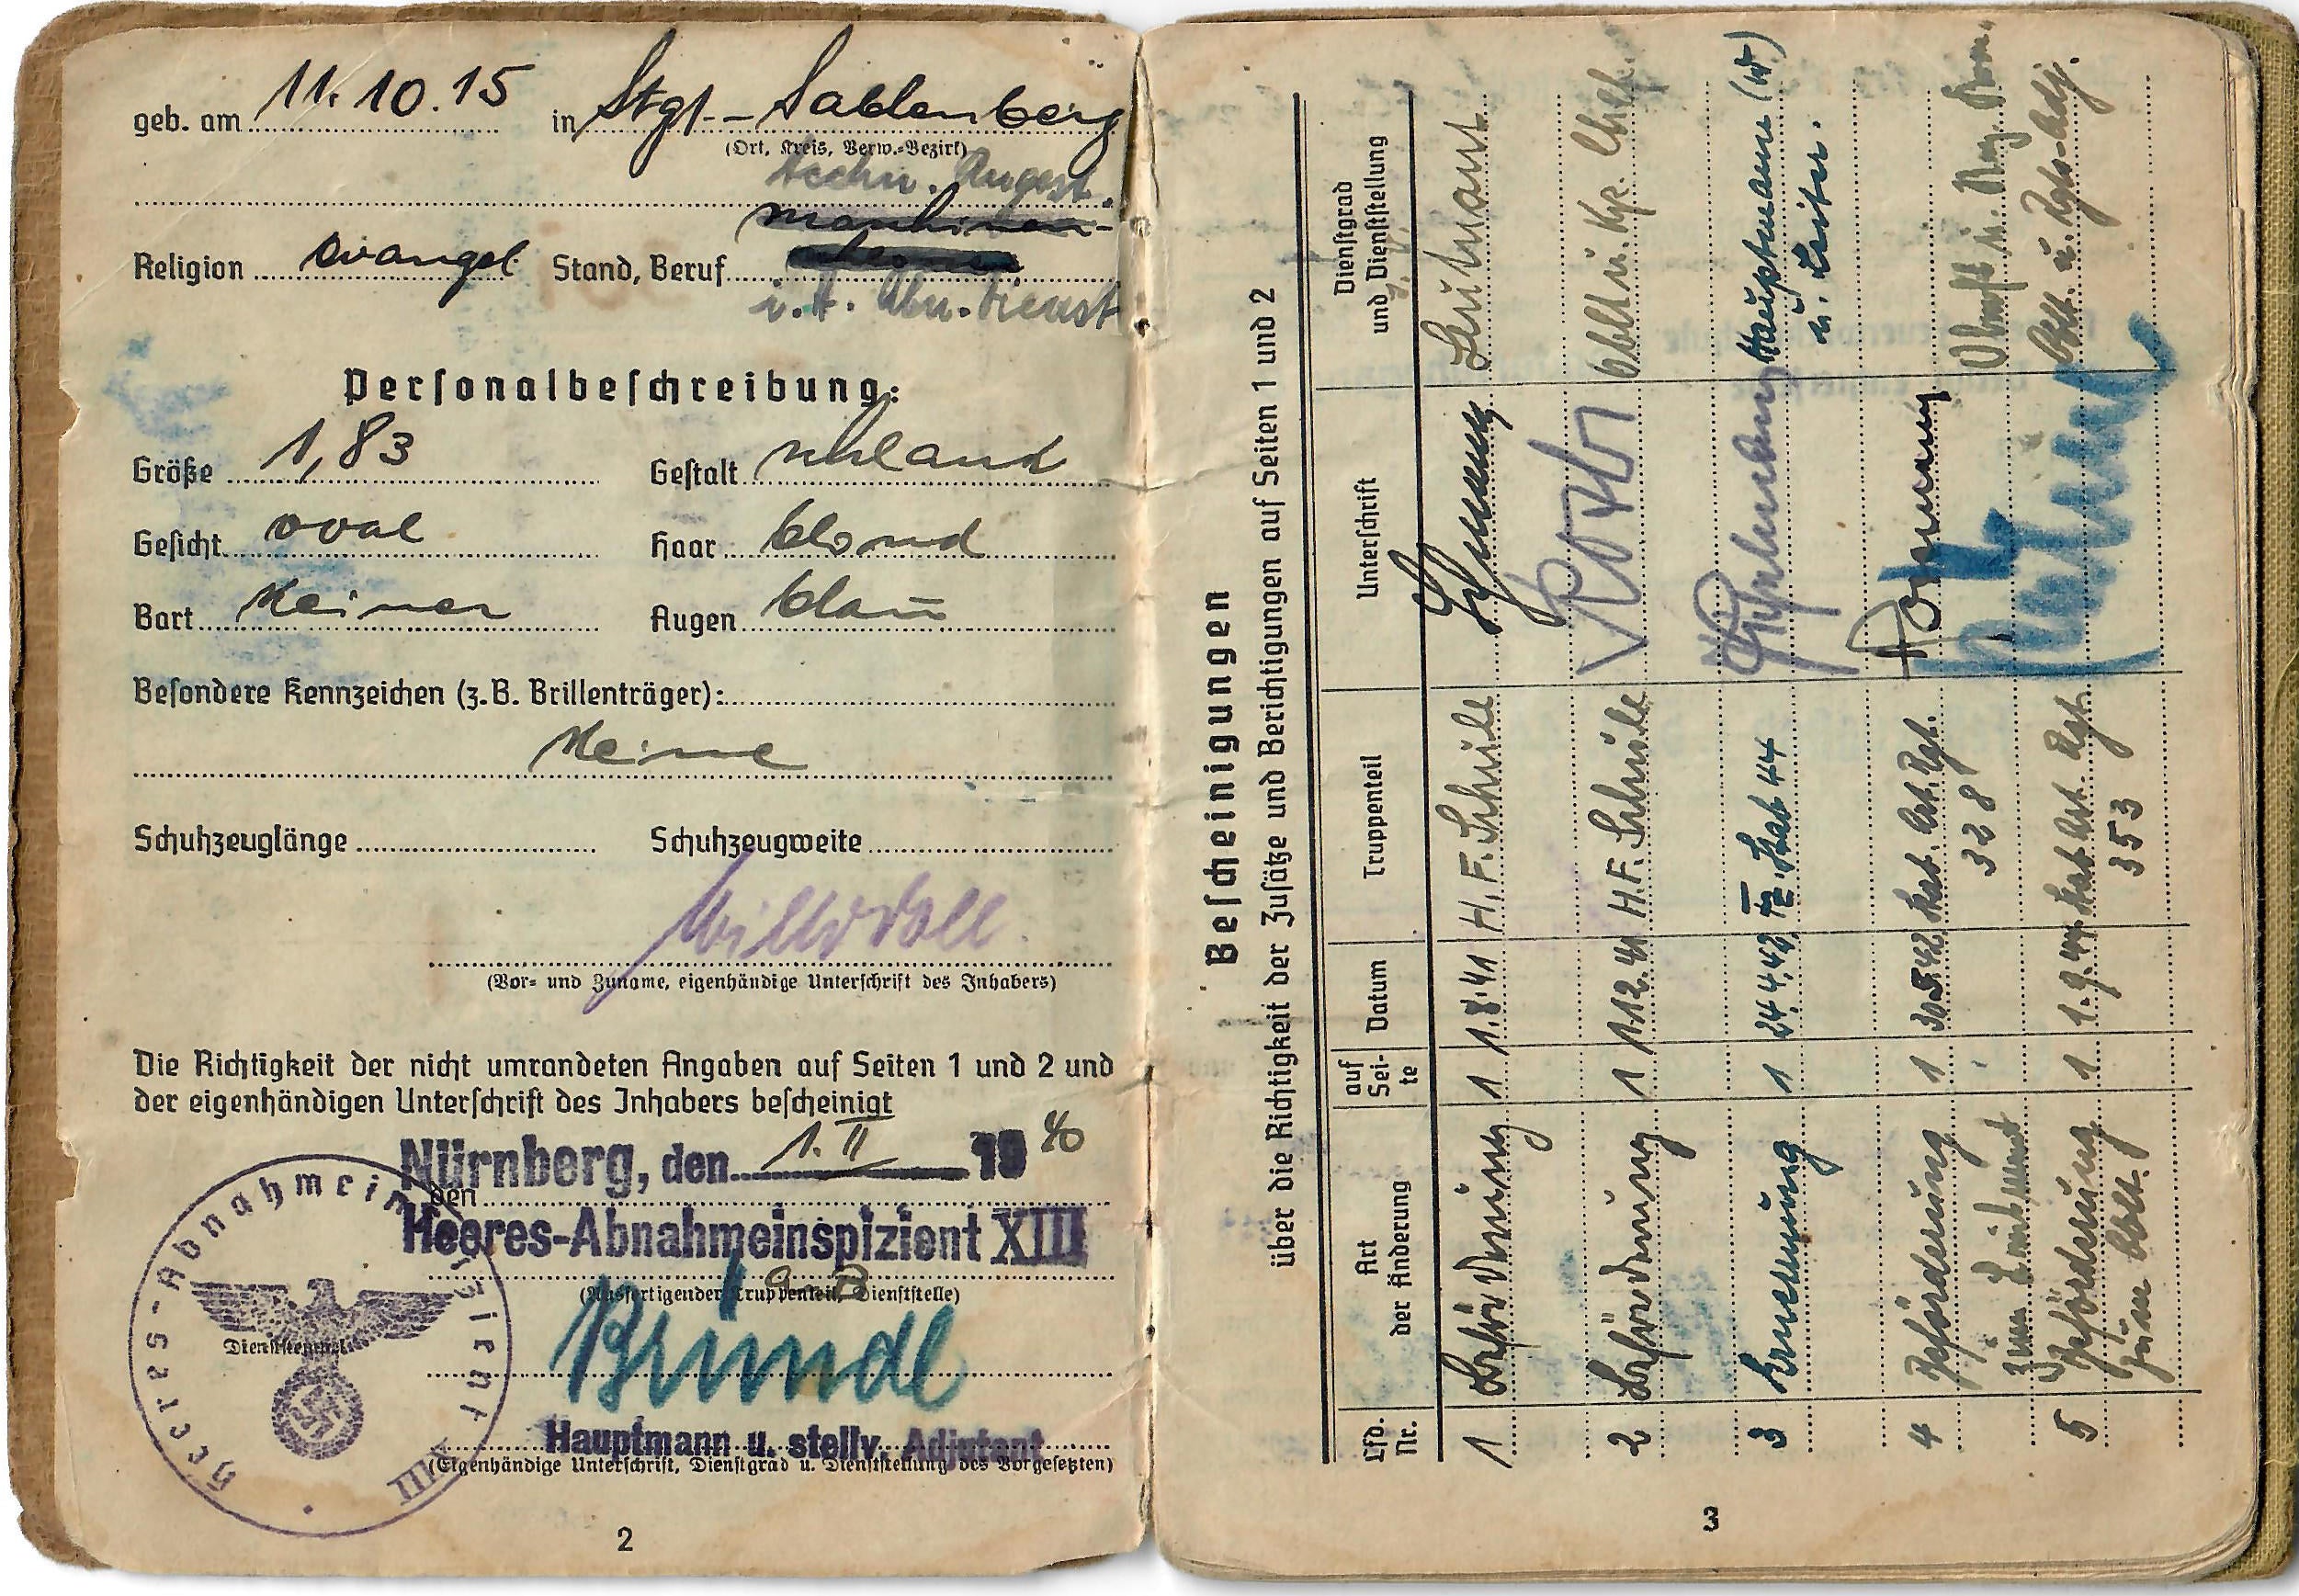 geb. am 11.10.15 in Stgt.-
(Ort, Kreis, Verw.-Bezirk)
techn. Angest.
Religion evangel Stand, Beruf
i. H. Abn. Dienst
Personalbeschreibung:
Größe 1,83 Gestalt schlank
Gesicht oval Haar blond
Bart keiner Augen blau
Besondere Kennzeichen (z.B. Brillenträger):
keine
Schuhzeuglänge Schuhzeugweite
(Vor- und Zuname, eigenhändige Unterschrift des Inhabers)
Die Richtigkeit der nicht umrandeten Angaben auf Seiten 1 und 2 und
der eigenhändigen Unterschrift des Inhabers bescheinigt
Nürnberg, den 1. II 1940
den
Heeres-Abnahmeinspizient XIII
(Ausfertigender Truppenteil, Dienststelle)
Bründl
Hauptmann u. stellv. Adjutant
(Eigenhändige Unterschrift, Dienstgrad u. Dienststellung des Vorgesetzten)
Heeres-Abnahmeinspizient XIII
Dienststempel
2
Bescheinigungen
über die Richtigkeit der Zusätze und Berichtigungen auf Seiten 1 und 2
Lfd. Nr. Art der Änderung auf Seite Datum Truppenteil Unterschrift Dienstgrad und Dienststellung
1 Beförderung 1 1.8.41 H.F. Schule Leutnant
2 Beförderung 1 1.12.41 H.F. Schule Oblt u. Kp. Chef.
3 Ernennung 1 24.4.42 Stab 44 Hauptmann (W)
u. Leiter.
4 Beförderung 1 30.5.42 Art. Rgt. Oberstlt u. Rgt. Kom.
zum Leutnant 328
5 Beförderung 1 1.9.44 Art. Rgt. Oblt. u. Rgts-Adj.
zum Oblt. 353
3